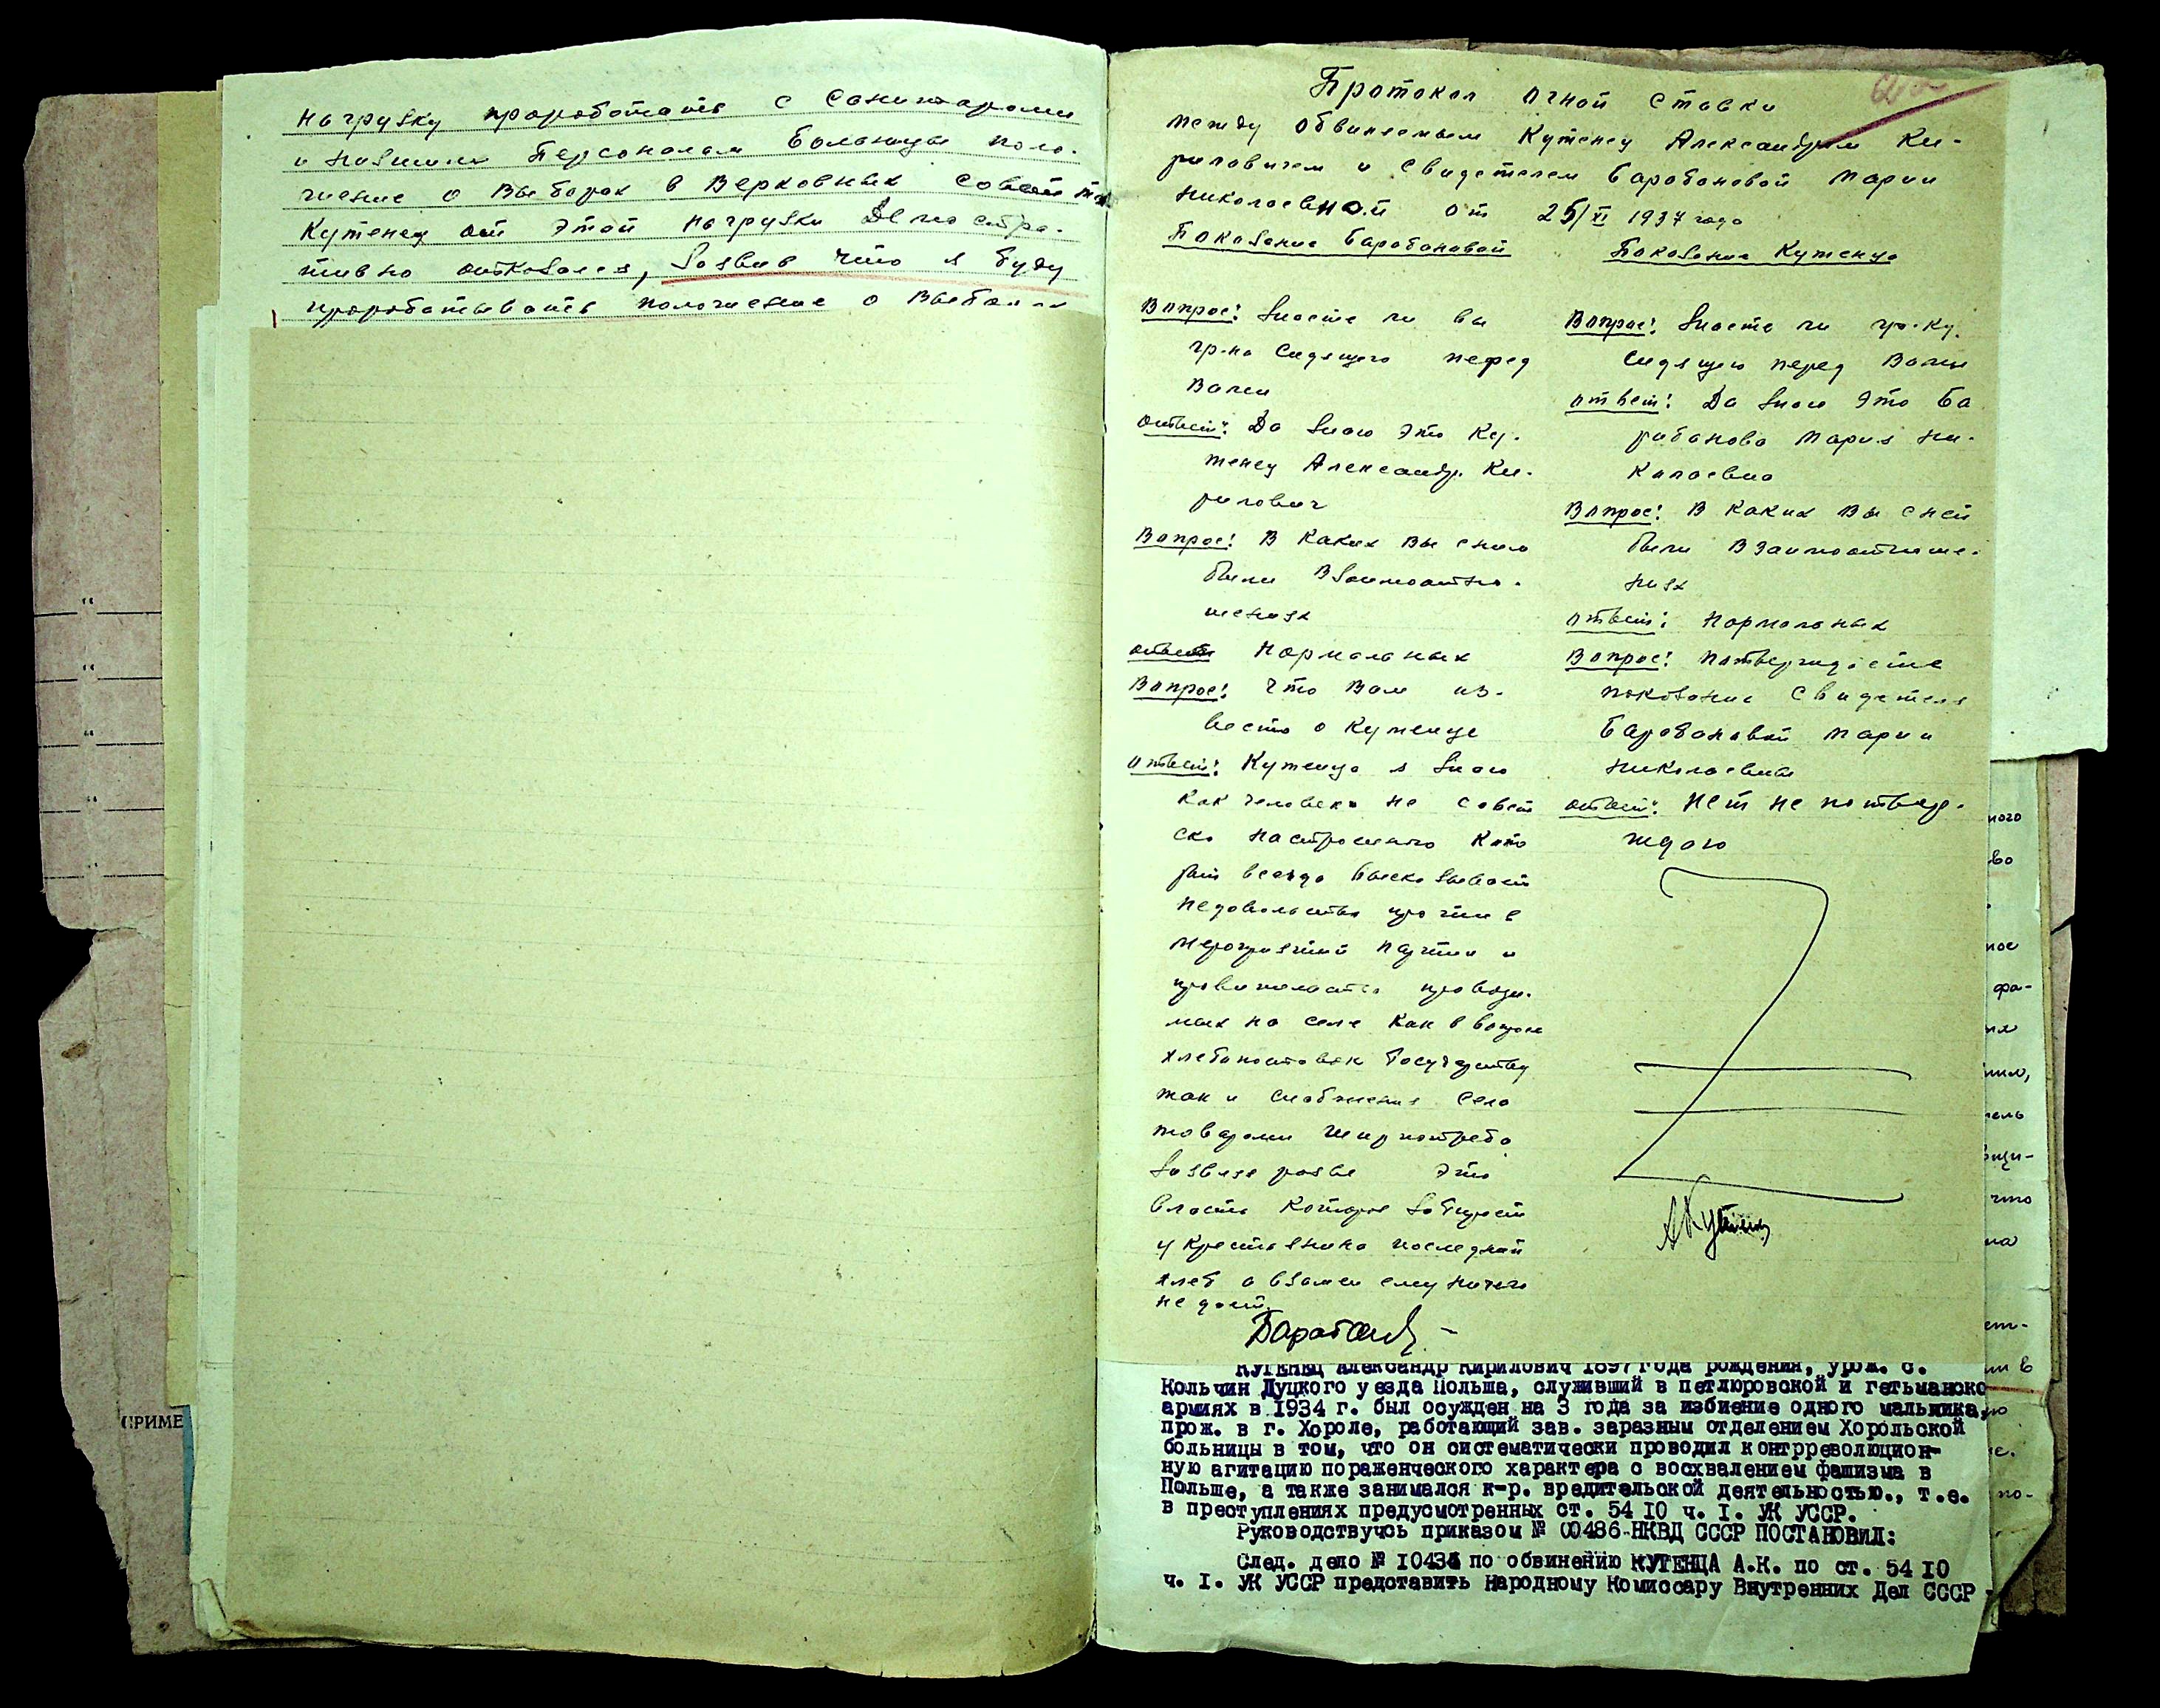 нагрузку проработать с санитарами
и низшим персоналом больницы поло-
жение о выборах в Верховный совет
Кутенец от этой нагрузки демостра-
тивно отказался, заявив что я буду
прорабатывать положение о
Протокол очной ставки
между обвиняемым Кутенец Александром Ки-
риловичем и свидетелем Барабановой Марии
Николаевной от 25/XI 1937 года
Показание Барабановой
Вопрос: Знаете ли вы
гр-на сидящего перед
Вами
ответ: Да знаю это Ку-
тенец Александр Ки-
рилович
Вопрос: В каких вы с ним
были взаимоотно-
шениях
ответ Нормальных
Вопрос: Что вам из-
вестно о Кутенце
ответ: Кутенца я знаю
как человека не совет
ско настроенного кото
рый всегда высказывает
недовольство против
мероприятий партии и
правительства проводи-
мых на селе как в вопросе
хлебопоставок государству
так и снабжения села
товарами ширпотреба
заявляя разве это
власть которые забирает
у крестьянина последний
хлеб а взамен ему ничего
не дает.
Барабанов
Показание Кутенца
Вопрос: Знаете ли гр-ку.
сидящую перед Вами
ответ: Да знаю это Ба
рабанова Мария Ни-
колаевна
Вопрос: В каких вы с ней
были взаимоотноше-
ниях
ответ: Нормальных
Вопрос: Потверждаете
показание свидетеля
Барабановой Марии
Николаевны
ответ: Нет не потвер-
ждаю
АКутенец
КУТЕНЕЦ Александр Кирилович 1897 года рождения, урож. с.
Кольчин Луцкого уезда Польша, служивший в петлюровской и гетьманско
армиях в 1934 г. был осужден на 3 года за избиение одного мальчика,
прож. в г. Хороле, работающий зав. заразным отделением Хорольской
больницы в том, что он систематически проводил контрреволюцион-
ную агитацию пораженческого характера с восхвалением фашизма в
Польше, а также занимался к-р. вредительской деятельностью., т.е.
в преступлениях предусмотренных ст. 54 10 ч. I. УК УССР.
Руководствуясь приказом № 00486-НКВД СССР ПОСТАНОВИЛ:
След. дело № 10434 по обвинению КУТЕНЦА А.К. по ст. 54 10
ч. I. УК УССР представить Народному Комиссару Внутренних Дел СССР
ПРИМЕ